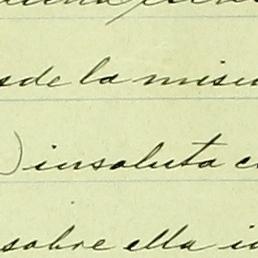 sde la mism
) insoluta c
sobre ella i